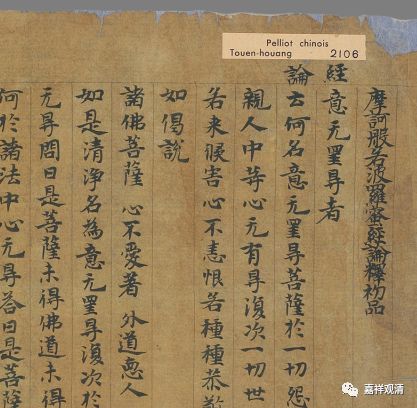 Pelliot chinois
Touen-houang 2106
摩訶般若波羅蜜經論釋初品
經 意无罣㝵者
論 云何名意无罣㝵菩薩於一切怨
親人中等心无有㝵復次一切世
若来侵害心不恚恨若種種恭敬
如偈說
諸佛菩薩 心不愛著 外道惡人
如是清淨名為意无罣㝵復次於
无㝵問曰是菩薩未得佛道未得
何於諸法中心无㝵答曰是菩薩
嘉祥观清